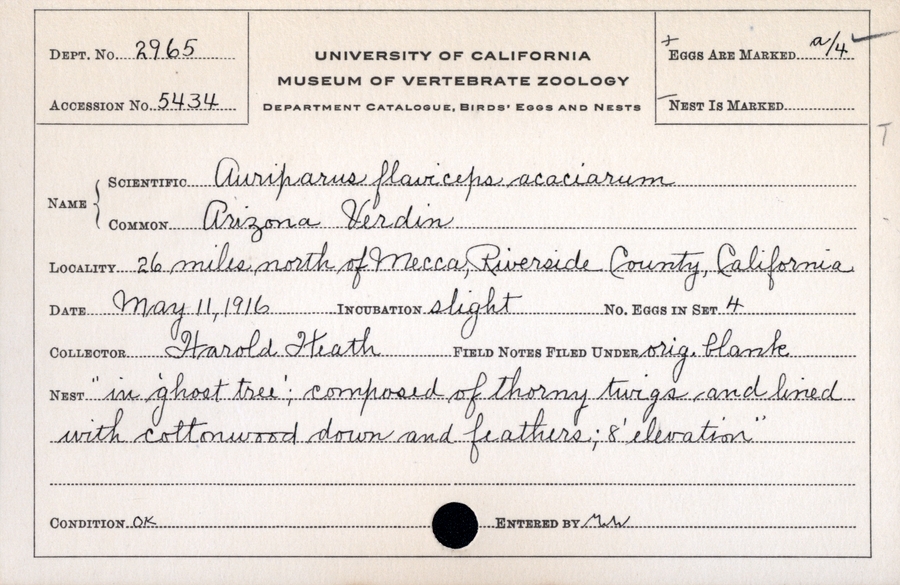 DEPT. NO. 2965
ACCESSION NO. 5434
UNIVERSITY OF CALIFORNIA
MUSEUM OF VERTEBRATE ZOOLOGY
DEPARTMENT CATALOGUE, BIRDS' EGGS AND NESTS
+ EGGS ARE MARKED a/4
NEST IS MARKED
NAME
SCIENTIFIC Auriparus flaviceps acaciarum
COMMON Arizona Verdin
LOCALITY 26 miles north of Mecca, Riverside County, California
DATE May 11, 1916 INCUBATION slight NO. EGGS IN SET 4
COLLECTOR Harold Heath FIELD NOTES FILED UNDER orig. blank
NEST "in 'ghost tree'; composed of thorny twigs and lined
with cottonwood down and feathers; 8' elevation"
CONDITION OK ENTERED BY